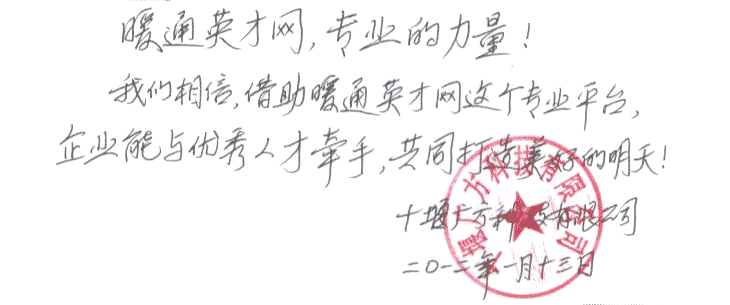 暖通英才网，专业的力量！
我们相信，借助暖通英才网这个专业平台，
企业能与优秀人才牵手，共同打造美好的明天！
十堰广方科技有限公司
二〇一二年一月十三日
十堰广方科技有限公司